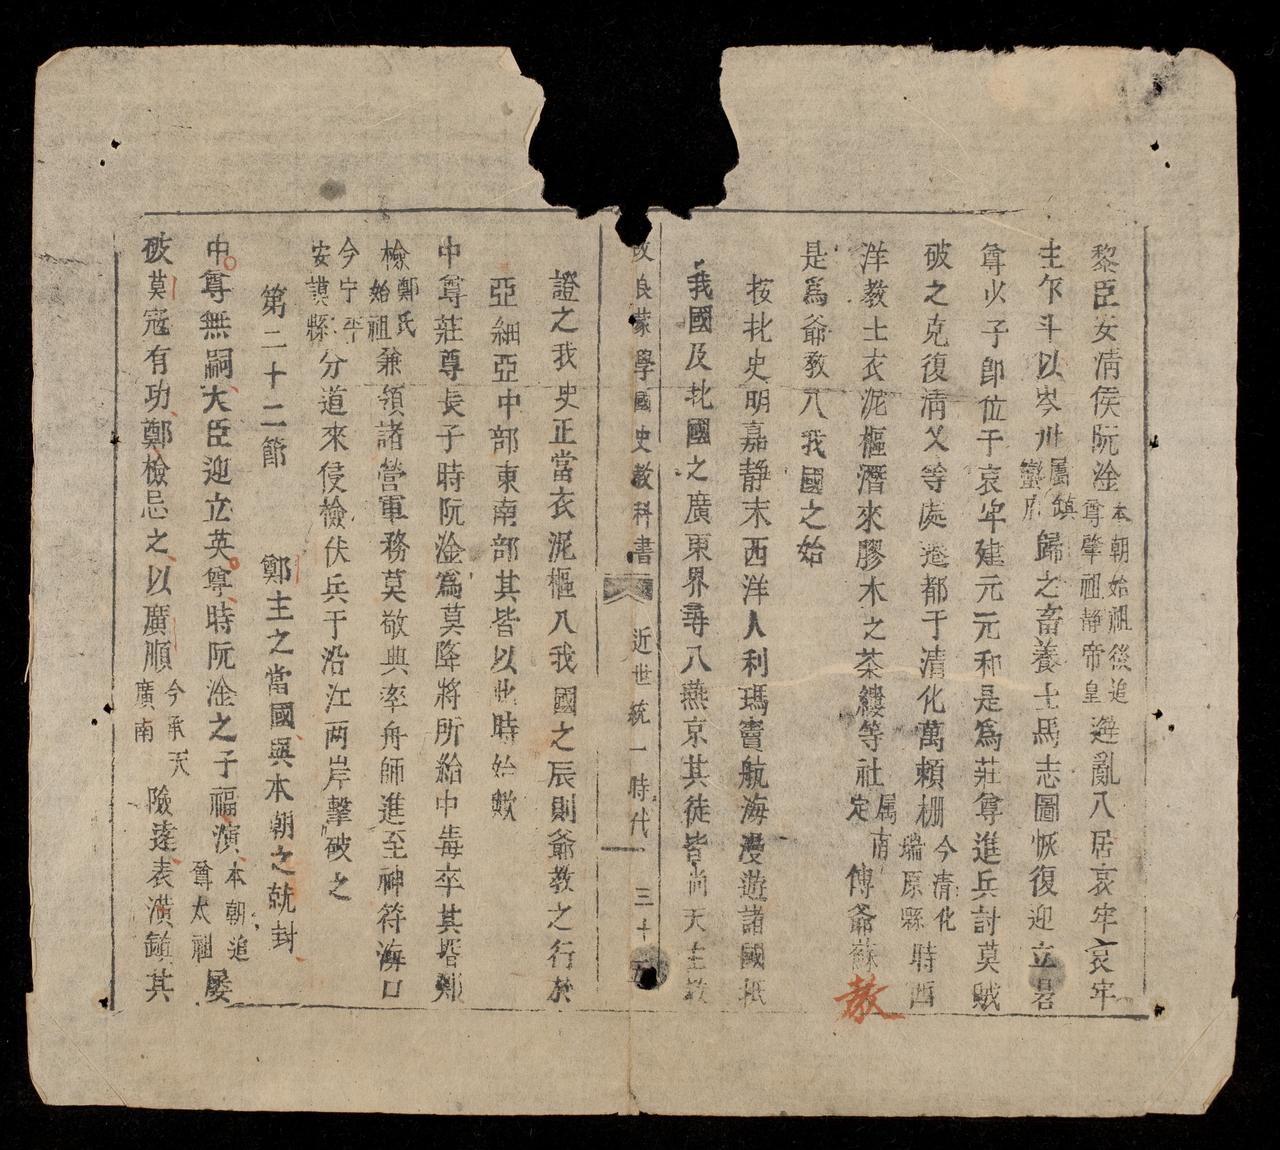 黎臣安清侯阮淦本朝始祖後追尊肇祖靜帝皇避亂入居哀牢哀牢
主乍斗以岑州屬鎮蠻府歸之畜養士馬志圖恢復迎立昭
尊少子即位于哀牢建元元和是爲莊尊進兵討莫賊
破之克復淸乂等處迻都于淸化萬賴柵今清化瑞原縣時西
洋教士衣泥樞潛來膠木之茶縷等社属南定傳爺蘇教
是爲爺教入我國之始
按北史明嘉靜末西洋人利瑪竇航海漫遊諸國抵
我國及北國之廣東界尋入燕京其徒皆尚天主教
改良蒙學國史教科書 近世統一時代 三十
證之我史正當衣泥樞入我國之辰則爺教之行於
亞細亞中部東南部其皆以此時始歟
中尊莊尊長子時阮淦爲莫降將所給中毒卒其壻鄭
檢鄭氏始祖兼領諸營軍務莫敬典率舟師進至神符海口
今宁平安謨縣分道來侵檢伏兵于沿江两岸擊破之
第二十二節 鄭主之當國與本朝之就封
中尊無嗣大臣迎立英尊時阮淦之子福演本朝追尊太祖屡
破莫冦有功鄭檢忌之以廣順今承天廣南險遠表潢鎮其